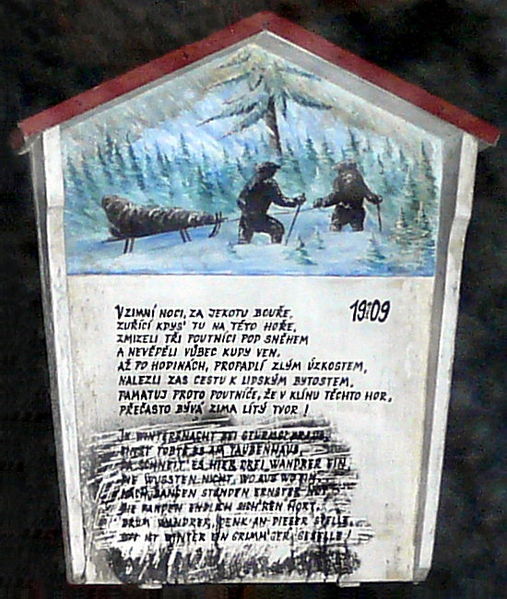 V ZIMNÍ NOCI, ZA JEKOTU BOUŘE,
1909
ZUŘÍCÍ KDYS' TU NA TÉTO HOŘE,
ZMIZELI TŘI POUTNÍCI POD SNĚHEM
A NEVĚDĚLI VŮBEC KUDY VEN.
AŽ PO HODINÁCH, PROPADLÍ ZLÝM ÚZKOSTEM,
NALEZLI ZAS CESTU K LIDSKÝM BYTOSTEM,
PAMATUJ PROTO POUTNÍČE, ŽE V KLÍNU TĚCHTO HOR,
PŘEČASTO BÝVÁ ZIMA LÍTÝ TVOR !
IN WINTERSNACHT BEI STURMGEBRAUS,
EINST TOBTE ES AM TAUBENHAUS,
DA SCHNEIT' ES HIER DREI WANDRER EIN
SIE WUSSTEN NICHT, WO AUS WO EIN.
NACH BANGEN STUNDEN ERNSTER NOT,
SIE FANDEN ENDLICH SICH'REN HORT.
DRUM WANDRER, DENK AN DIESER STELLE,
OFT IST WINTER EIN GRIMM'GER GESELLE !